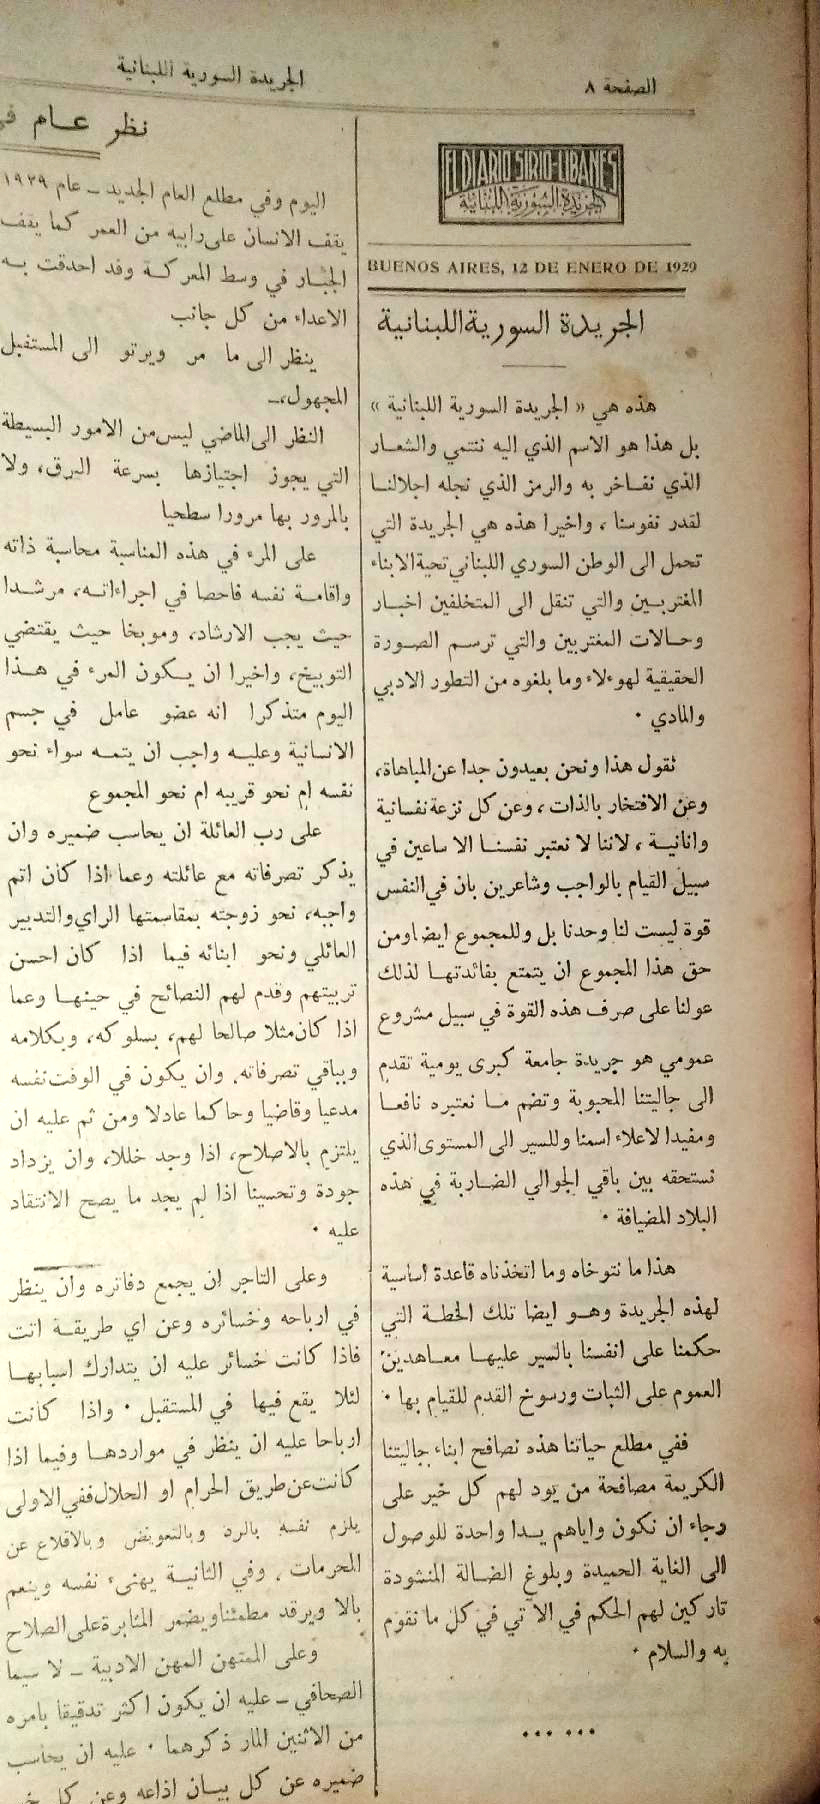 الصفحة ٨
الجريدة السورية اللبنانية
EL DIARIO SIRIO-LIBANES
الجريدة السورية اللبنانية
BUENOS AIRES, 12 DE ENERO DE 1929
الجريدة السورية اللبنانية
هذه هي « الجريدة السورية اللبنانية »
بل هذا هو الاسم الذي اليه ننتمي والشعار
الذي نفاخر به والرمز الذي نجله اجلالنا
لقدر نفوسنا ، واخيرا هذه هي الجريدة التي
تحمل الى الوطن السوري اللبناني تحية الابناء
المغتربين والتي تنقل الى المتخلفين اخبار
وحالات المغتربين والتي ترسم الصورة
الحقيقية لهوءلاء وما بلغوه من التطور الادبي
والمادي ٠
نقول هذا ونحن بعيدون جدا عن المباهاة،
وعن الافتخار بالذات ، وعن كل نزعة نفسانية
وانانية ، لاننا لا نعتبر نفسنا الا ساعين في
سبيل القيام بالواجب وشاعرين بان في النفس
قوة ليست لنا وحدنا بل وللمجموع ايضا ومن
حق هذا المجموع ان يتمتع بفائدتها لذلك
عولنا على صرف هذه القوة في سبيل مشروع
عمومي هو جريدة جامعة كبرى يومية تقدم
الى جاليتنا المحبوبة وتضم ما نعتبره نافعا
ومفيدا لاعلاء اسمنا وللسير الى المستوى الذي
نستحقه بين باقي الجوالي الضاربة في هذه
البلاد المضيافة ٠
هذا ما نتوخاه وما اتخذناه قاعدة اساسية
لهذه الجريدة وهو ايضا تلك الخطة التي
حكمنا على انفسنا بالسير عليها معاهدين
العموم على الثبات ورسوخ القدم للقيام بها ٠
ففي مطلع حياتنا هذه نصافح ابناء جاليتنا
الكريمة مصافحة من يود لهم كل خير على
رجاء ان نكون واياهم يدا واحدة للوصول
الى الغاية الحميدة وبلوغ الضالة المنشودة
تاركين لهم الحكم في الاتي في كل ما نقوم
به والسلام ٠
••• •••
نظر عـام في
اليوم وفي مطلع العام الجديد ـ عام ١٩٢٩
يقف الانسان على رابيه من العمر كما يقف
الجبار في وسط المعركة وقد احدقت به
الاعداء من كل جانب
ينظر الى ما مر ويرنو الى المستقبل
المجهول،ـ
النظر الى الماضي ليس من الامور البسيطة
التي يجوز اجتيازها بسرعة البرق، ولا
بالمرور بها مرورا سطحيا
على المرء في هذه المناسبة محاسبة ذاته
واقامة نفسه فاحصا في اجراءاته، مرشدا
حيث يجب الارشاد، وموبخا حيث يقتضي
التوبيخ، واخيرا ان يكون المرء في هذا
اليوم متذكرا انه عضو عامل في جسم
الانسانية وعليه واجب ان يتمه سواء نحو
نفسه ام نحو قريبه ام نحو المجموع
على رب العائلة ان يحاسب ضميره وان
يذكر تصرفاته مع عائلته وعما اذا كان اتم
واجبه، نحو زوجته بمقاسمتها الراي والتدبير
العائلي ونحو ابنائه فيما اذا كان احسن
تربيتهم وقدم لهم النصائح في حينها وعما
اذا كان مثلا صالحا لهم، بسلوكه، وبكلامه
وبباقي تصرفاته. وان يكون في الوقت نفسه
مدعيا وقاضيا وحاكما عادلا ومن ثم عليه ان
يلتزم بالاصلاح، اذا وجد خللا، وان يزداد
جودة وتحسينا اذا لم يجد ما يصح الانتقاد
عليه ٠
وعلى التاجر ان يجمع دفاتره وان ينظر
في ارباحه وخسائره وعن اي طريقة اتت
فاذا كانت خسائر عليه ان يتدارك اسبابها
لئلا يقع فيها في المستقبل ٠ واذا كانت
ارباحا عليه ان ينظر في مواردها وفيما اذا
كانت عن طريق الحرام او الحلال ففي الاولى
يلزم نفسه بالرد وبالتعويض وبالاقلاع عن
المحرمات . وفي الثانية يهنىء نفسه وينعم
بالا ويرقد مطمئنا ويضمر المثابرة على الصلاح
وعلى الممتهن المهن الادبية ـ لا سيما
الصحافي ـ عليه ان يكون اكثر تدقيقا بامره
من الاثنين المار ذكرهما ٠ عليه ان يحاسب
ضميره عن كل بيان اذاعه وعن كل